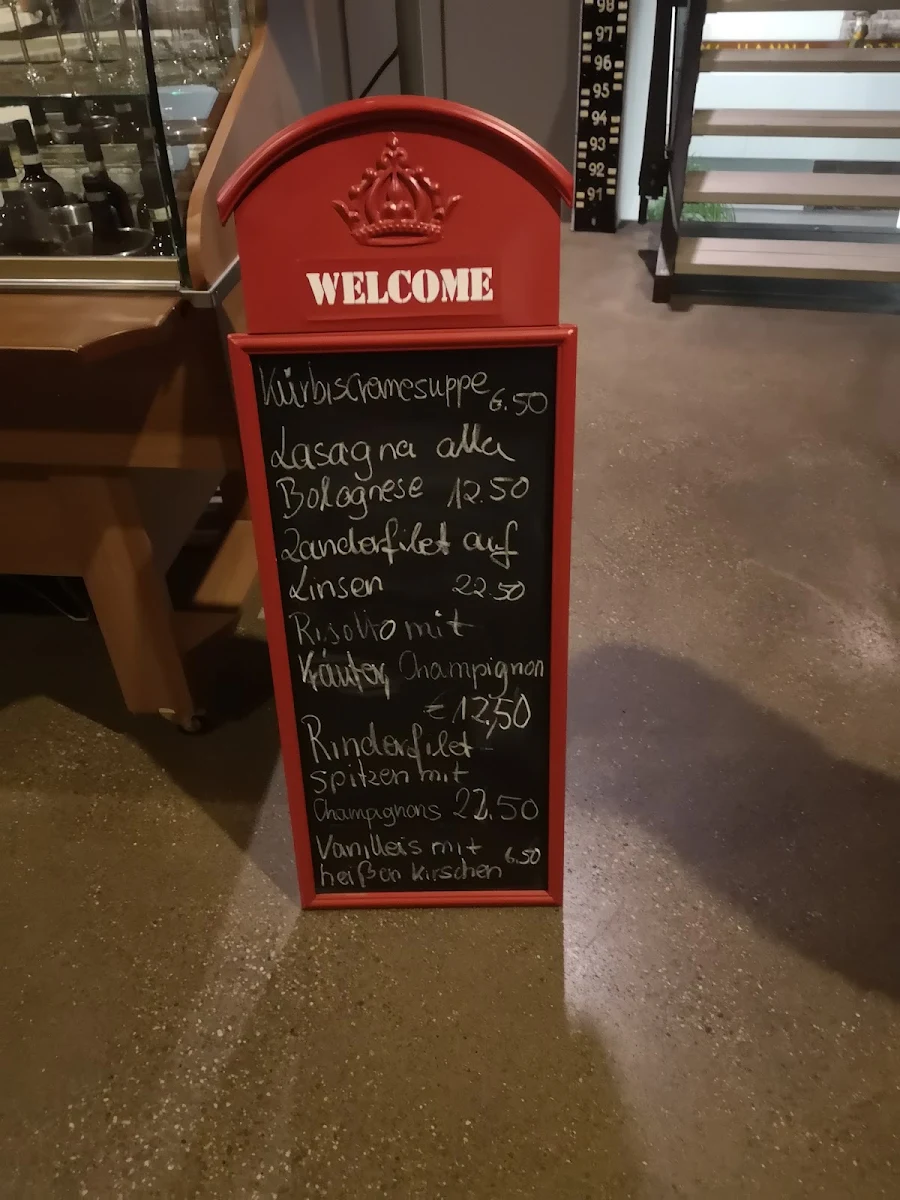 98
97
96
95
94
93
92
91
HANNA
WELCOME
Kürbiscremesuppe 6.50
Lasagna alla
Bolognese 12.50
Zanderfilet auf
Linsen 22.50
Risotto mit
Kräuter Champignon
€ 12,50
Rinderfilet-
spitzen mit
Champignons 22.50
Vanilleis mit
heißen Kirschen 6.50